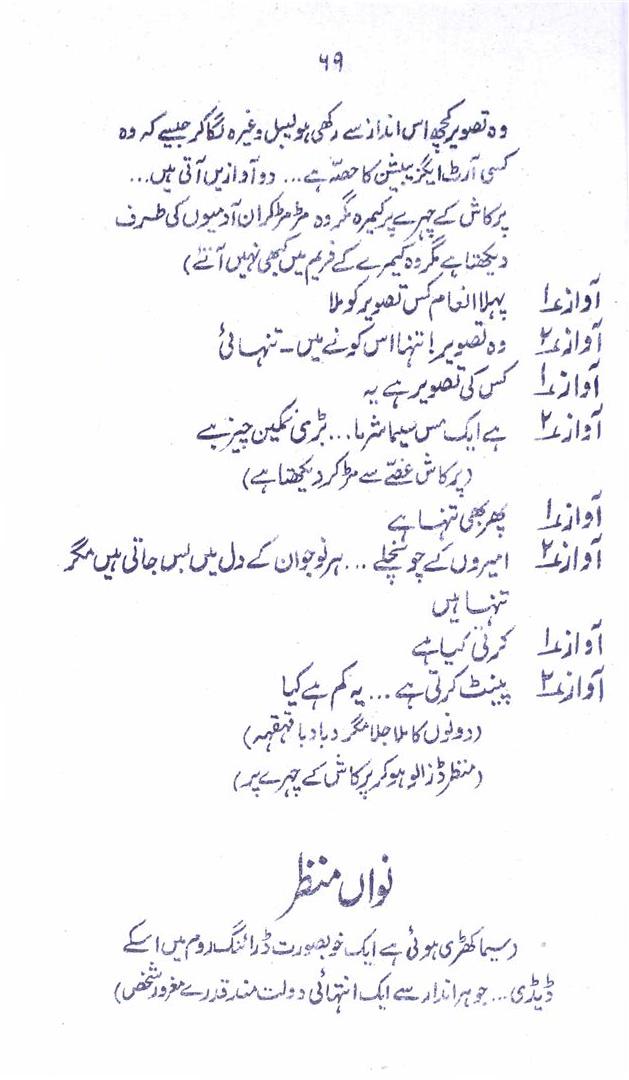 ۶۹
وہ تصویر کچھ اس انداز سے رکھی ہو لیبل وغیرہ لگا کر جیسے کہ وہ
کسی آرٹ ایگزیبیشن کا حصّہ ہے... دو آوازیں آتی ہیں...
پرکاش کے چہرے پر کیمرہ مگر وہ مڑ مڑ کر ان آدمیوں کی طرف
دیکھتا ہے مگر وہ کیمرے کے فریم میں کبھی نہیں آتے)
آواز ۱؎ پہلا انعام کس تصویر کو ملا
آواز ۲؎ وہ تصویر! تنہا اس کونے میں ۔ تنہائی
آواز ۱؎ کس کی تصویر ہے یہ
آواز ۲؎ ہے ایک مس سیما شرما... بڑی نمکین چیز ہے
(پرکاش غصّے سے مڑ کر دیکھتا ہے)
آواز ۱؎ پھر بھی تنہا ہے
آواز ۲؎ امیروں کے چونچلے ... ہر نوجوان کے دل میں بس جاتی ہیں مگر
تنہا ہیں
آواز ۱؎ کرتی کیا ہے
آواز ۲؎ پینٹ کرتی ہے ... یہ کم ہے کیا
(دونوں کا ملا جلا مگر دبا دبا قہقہہ)
(منظر ڈزالو ہو کر پرکاش کے چہرے پر)
نواں منظر
(سیما کھڑی ہوئی ہے ایک خوبصورت ڈرائنگ روم میں اسکے
ڈیڈی... جو ہر انداز سے ایک انتہائی دولت مند قدرے مغرور شخص)